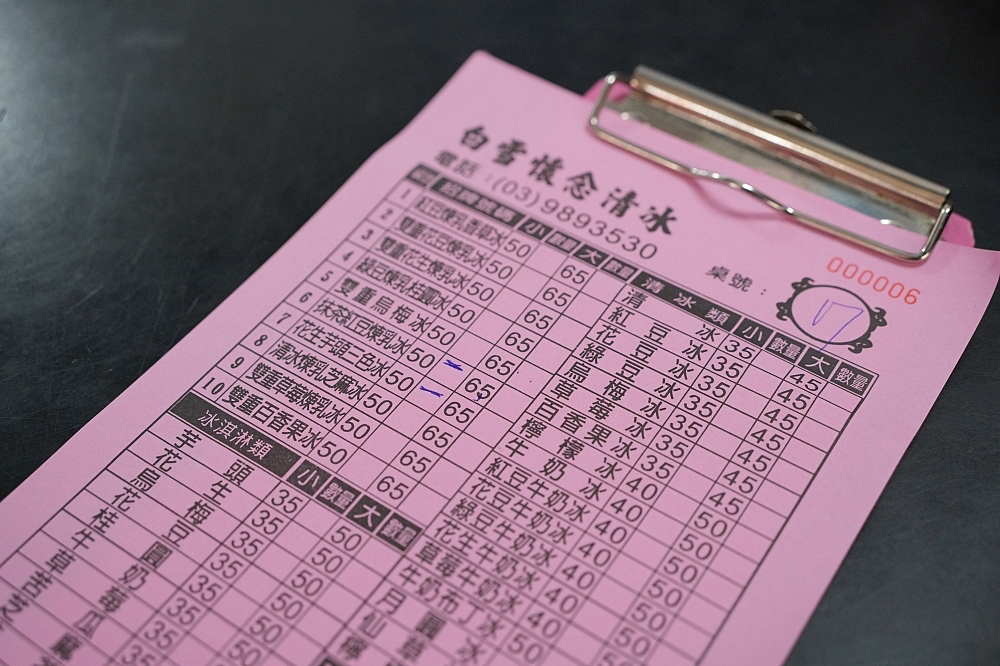 白雪懷念清冰
電話:(03)9893530
桌號: 17
000006
小 數量 大 數量
1 紅豆煉乳香草冰 50 65
2 雙重花豆煉乳冰 50 65
3 雙重花生煉乳冰 50 65
4 綠豆煉乳桂圓冰 50 65
5 雙重烏梅冰 50 65
6 抹茶紅豆煉乳冰 50 65
7 花生芋頭三色冰 50 65
8 清冰煉乳芝麻冰 50 65
9 雙重草莓煉乳冰 50 65
10 雙重百香果冰 50 65
冰淇淋類 小 數量 大 數量
芋頭 35 50
花生 35 50
烏梅 35 50
花豆 35 50
桂圓 35 50
牛奶 35
草莓
苦瓜
芝麻
清冰類 小 數量 大 數量
清冰 35 45
紅豆冰 35 45
花豆冰 35 45
綠豆冰 35 45
烏梅冰 35 45
草莓冰 35 45
百香果冰
檸檬冰
牛奶冰 40 50
紅豆牛奶冰 40 50
花豆牛奶冰 40 50
綠豆牛奶冰 40 50
花生牛奶冰 40 50
草莓牛奶冰
牛奶布丁冰
月圓冰
仙草